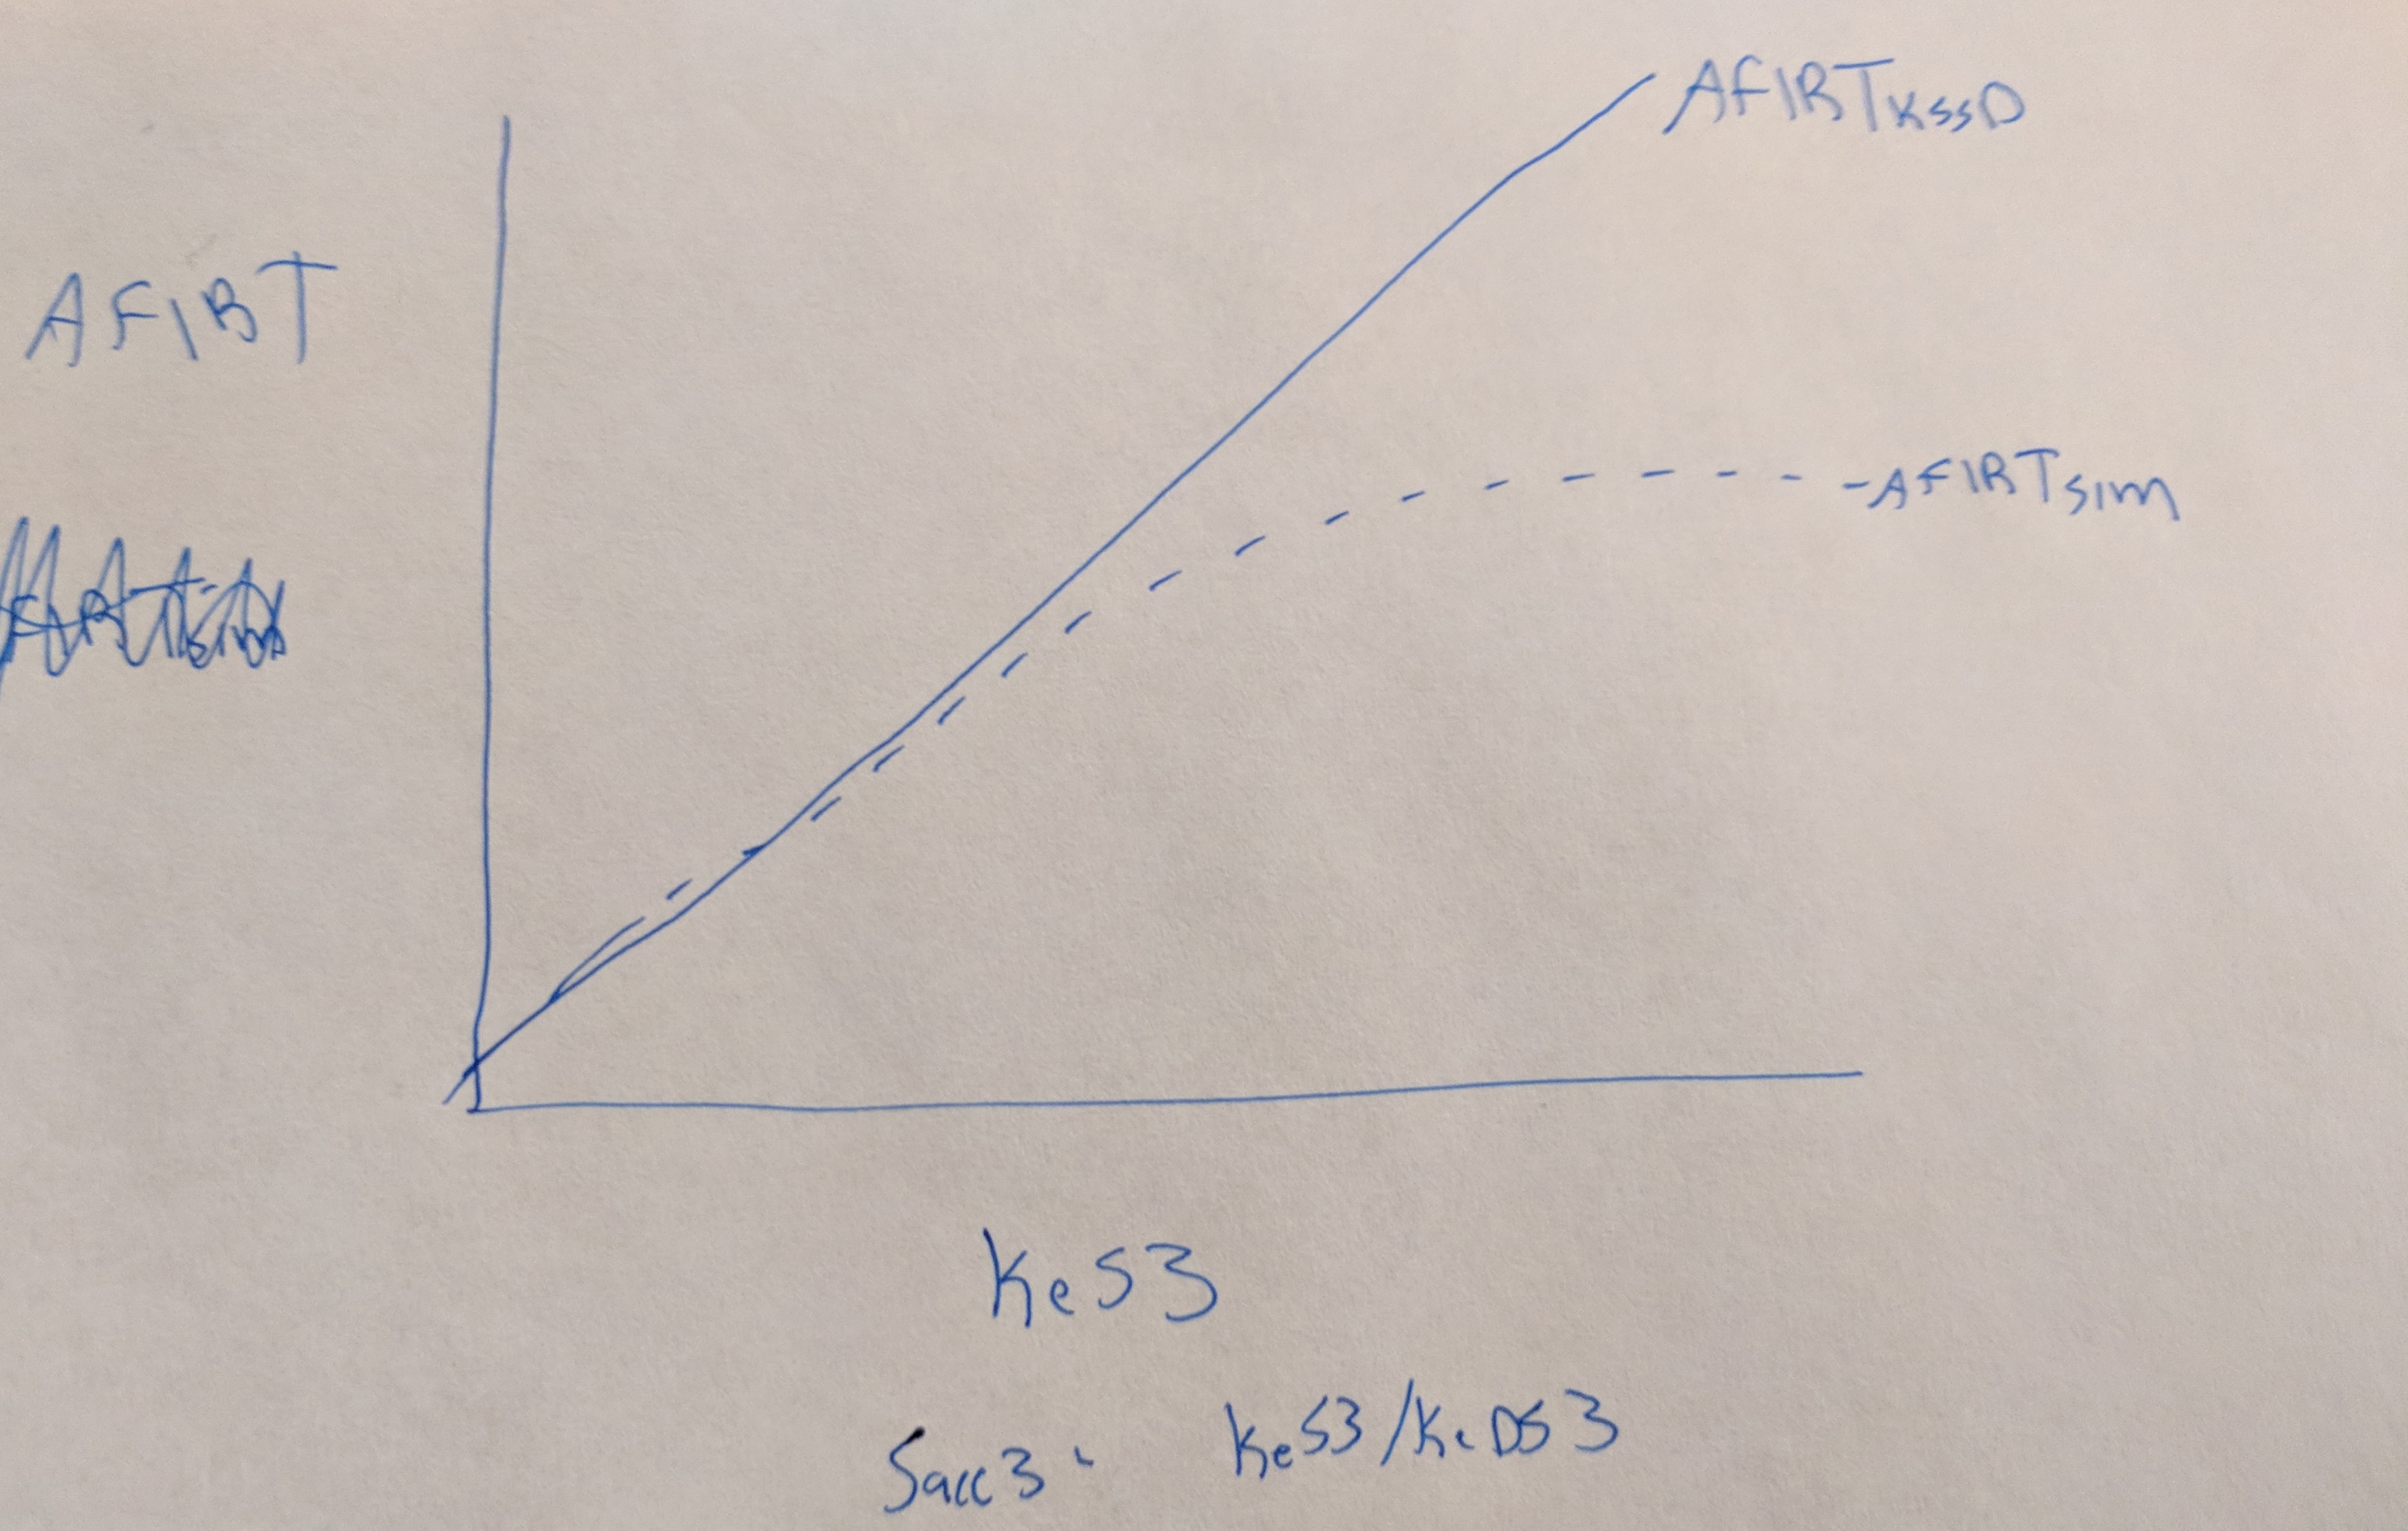 AFIRT KSSD
AFIRT
AFIRT sim
KeS3
Sacc3 KeS3/KeDS3